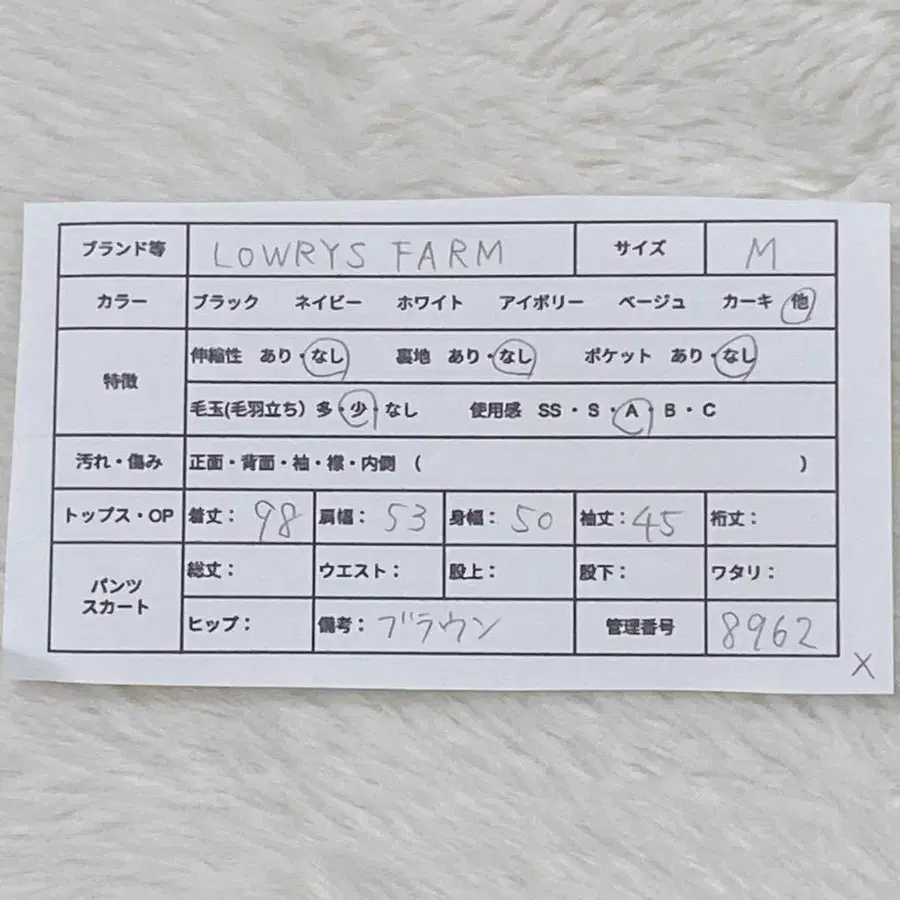 ブランド等 LOWRYS FARM サイズ M
カラー ブラック ネイビー ホワイト アイボリー ベージュ カーキ 他
特徴
伸縮性 あり・なし 裏地 あり・なし ポケット あり・なし
毛玉(毛羽立ち) 多・少・なし 使用感 SS・S・A・B・C
汚れ・傷み 正面・背面・袖・襟・内側 ( )
トップス・OP 着丈: 98 肩幅: 53 身幅: 50 袖丈: 45 裄丈:
パンツ
スカート
総丈: ウエスト: 股上: 股下: ワタリ:
ヒップ: 備考: ブラウン 管理番号 8962
X